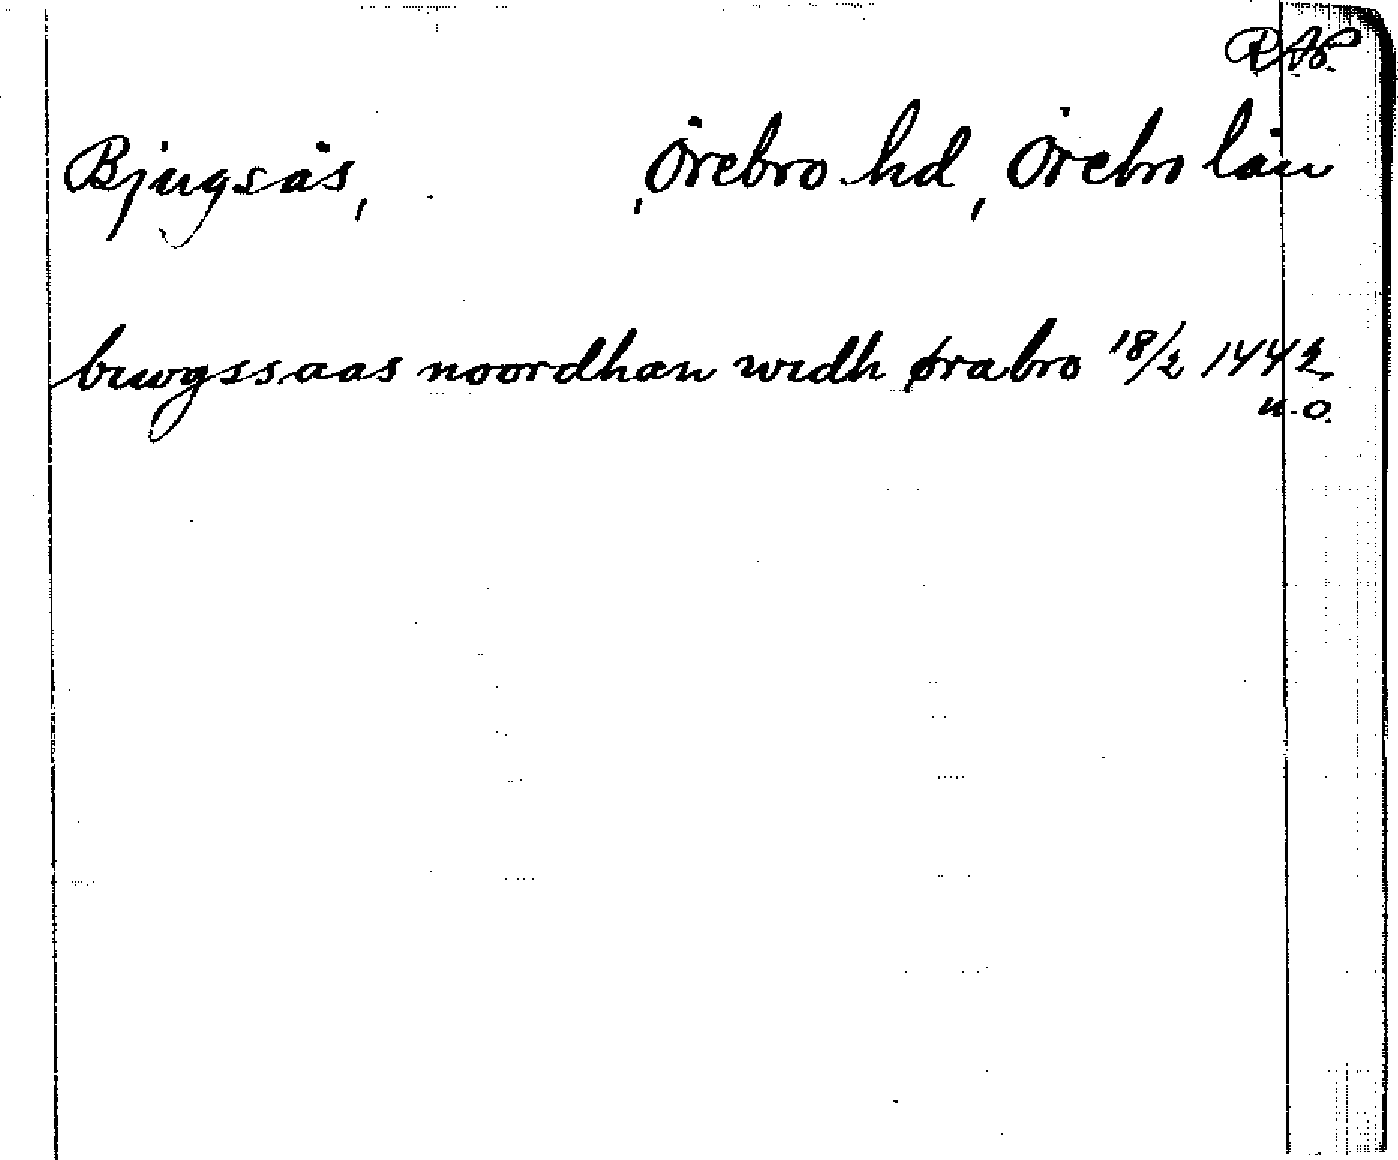 RAp.
Bjugsås, , Örebro hd, Örebro län
biwgssaas noordhan widh ørabro 18/2 1442
u.o.